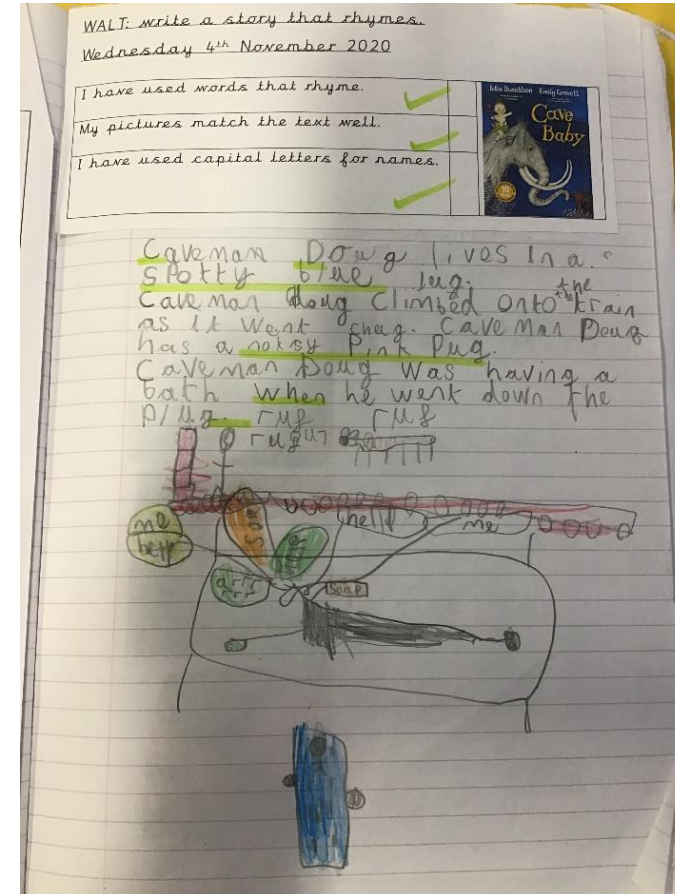 WALT: write a story that rhymes.
Wednesday 4th November 2020
I have used words that rhyme.
My pictures match the text well.
I have used capital letters for names.
Julia Donaldson Emily Gravett
Cave
Baby
Caveman Doug lives in a
spotty blue jug. the
Caveman Doug climbed onto the train
as it went chug. Caveman Doug
has a noisy Pink Pug.
Caveman Doug was having a
bath when he went down the
plug. rug rug
rug
me
help
Soap
help
me
arrr
Soap